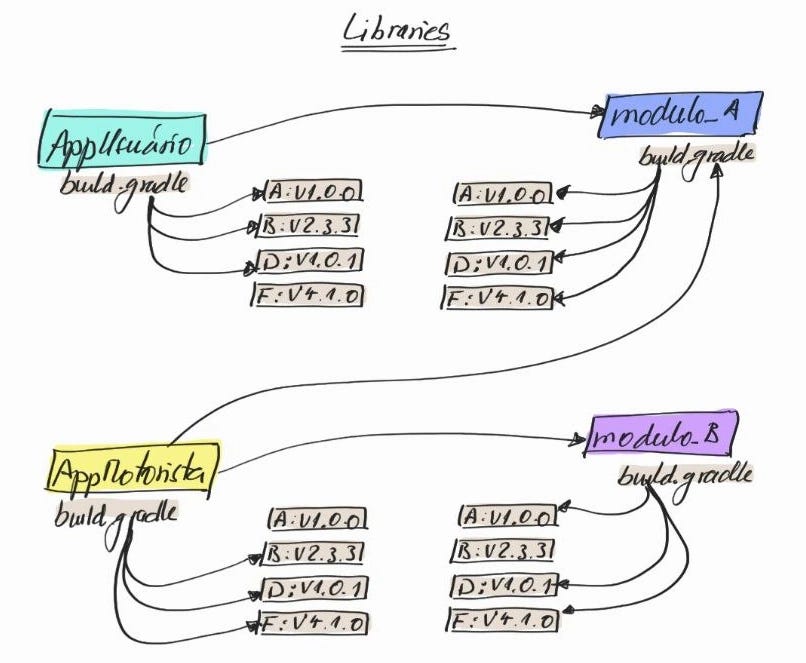 Libraries
AppUsuário
build.gradle
A:V1.0.0
B:V2.3.3
D:V1.0.1
F:V4.1.0
modulo_A
build.gradle
A:V1.0.0
B:V2.3.3
D:V1.0.1
F:V4.1.0
AppMotorista
build.gradle
A:V1.0.0
B:V2.3.3
D:V1.0.1
F:V4.1.0
modulo_B
build.gradle
A:V1.0.0
B:V2.3.3
D:V1.0.1
F:V4.1.0